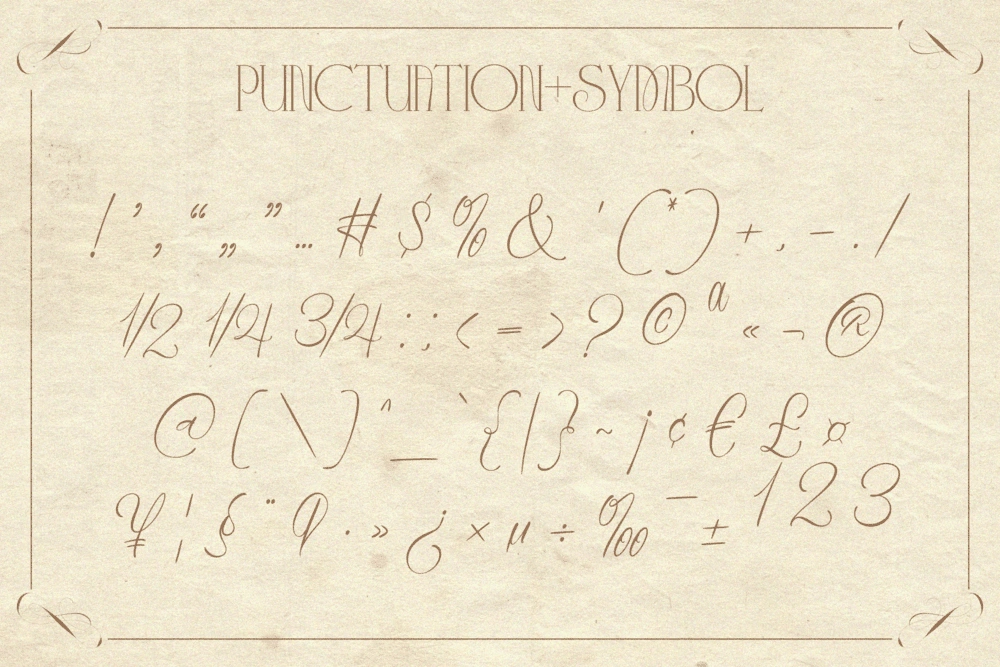 PUNCTUATION+SYMBOL
! ’ , “ „ ” … # $ % & ' ( * ) + , - . /
½ ¼ ¾ : ; < = > ? © ª « ¬ ®
@ [ \ ] ^ _ ` { | } ~ ¡ ¢ € £ ¤
¥ ¦ § ¨ ¶ · » ¿ × µ ÷ ‰ ¯ ± ¹ ² ³